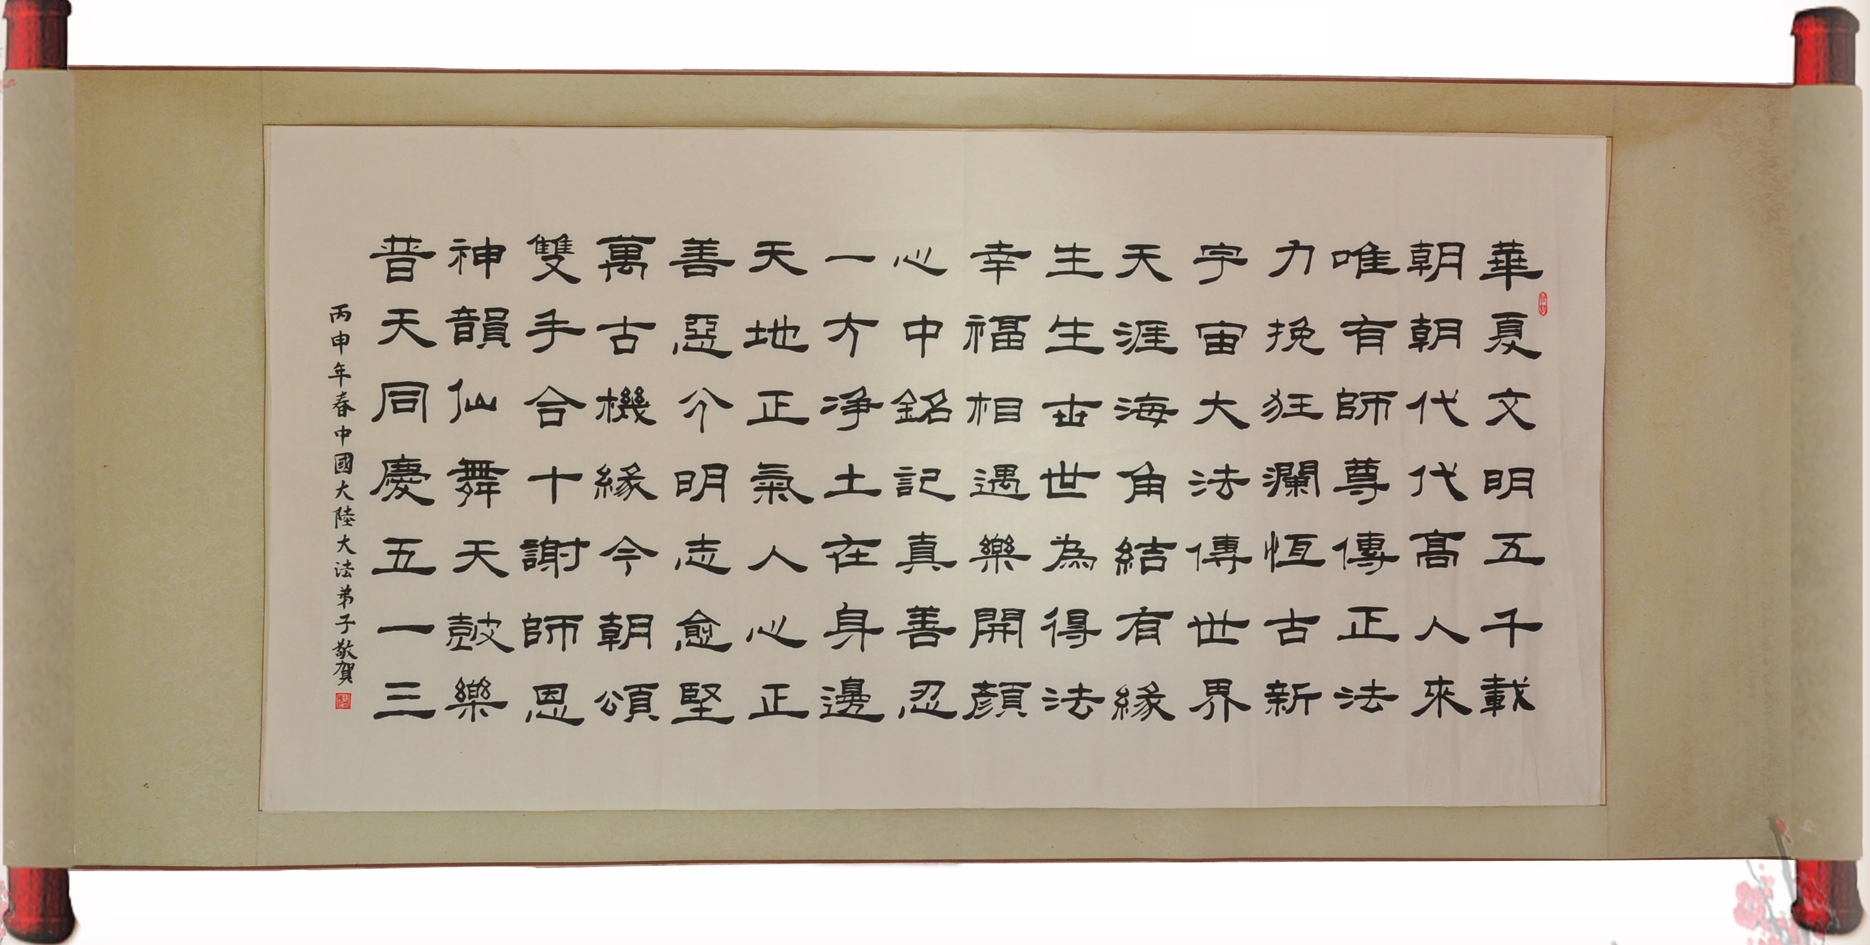 華夏文明五千載
朝朝代代高人來
唯有師尊傳正法
力挽狂瀾恆古新
宇宙大法傳世界
天涯海角結有緣
生生世世為得法
幸福相遇樂開顏
心中銘記真善忍
一方净土在身邊
天地正氣人心正
善惡分明志愈堅
萬古機緣今朝頌
雙手合十謝師恩
神韻仙舞天鼓樂
普天同慶五一三
丙申年春中國大陸大法弟子敬賀